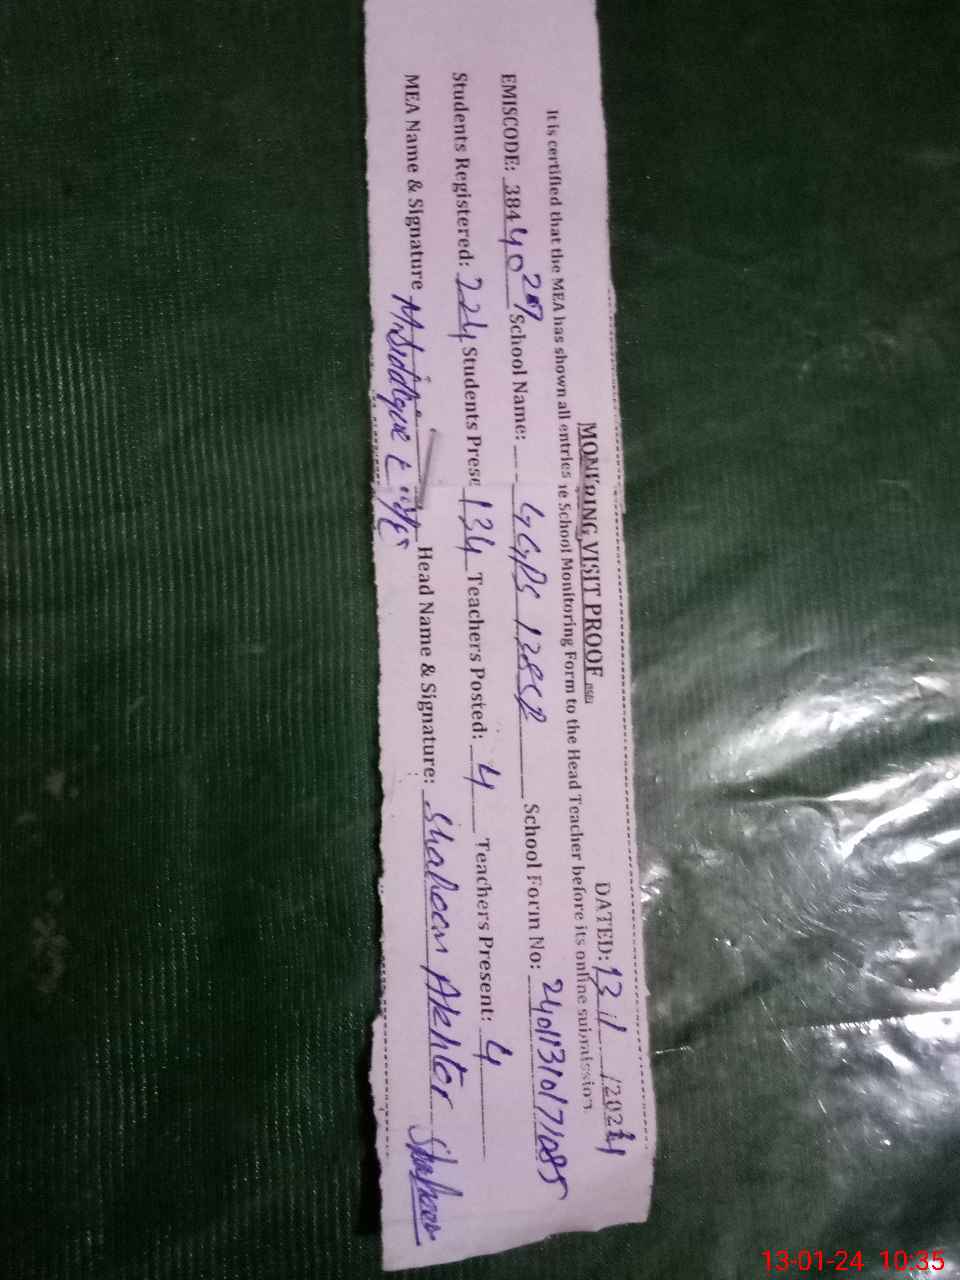 MONI DING VISIT PROOF
DATED: 13/1/2024
It is certified that the MEA has shown all entries ie School Monitoring Form to the Head Teacher before its online submission.
EMISCODE: 38440 School Name: GGPS 128 School Form No:
Students Registered: 224 Students Prese 134 Teachers Posted: 4 Teachers Present: 4
MEA Name & Signature M. Siddique Head Name & Signature: Shaheen Akhter Shaheen
13-01-24 10:35